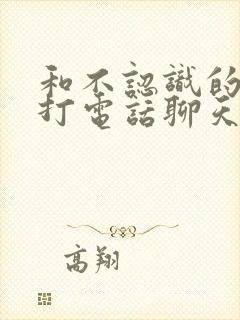 和不認識的
打電話聊天
高翔